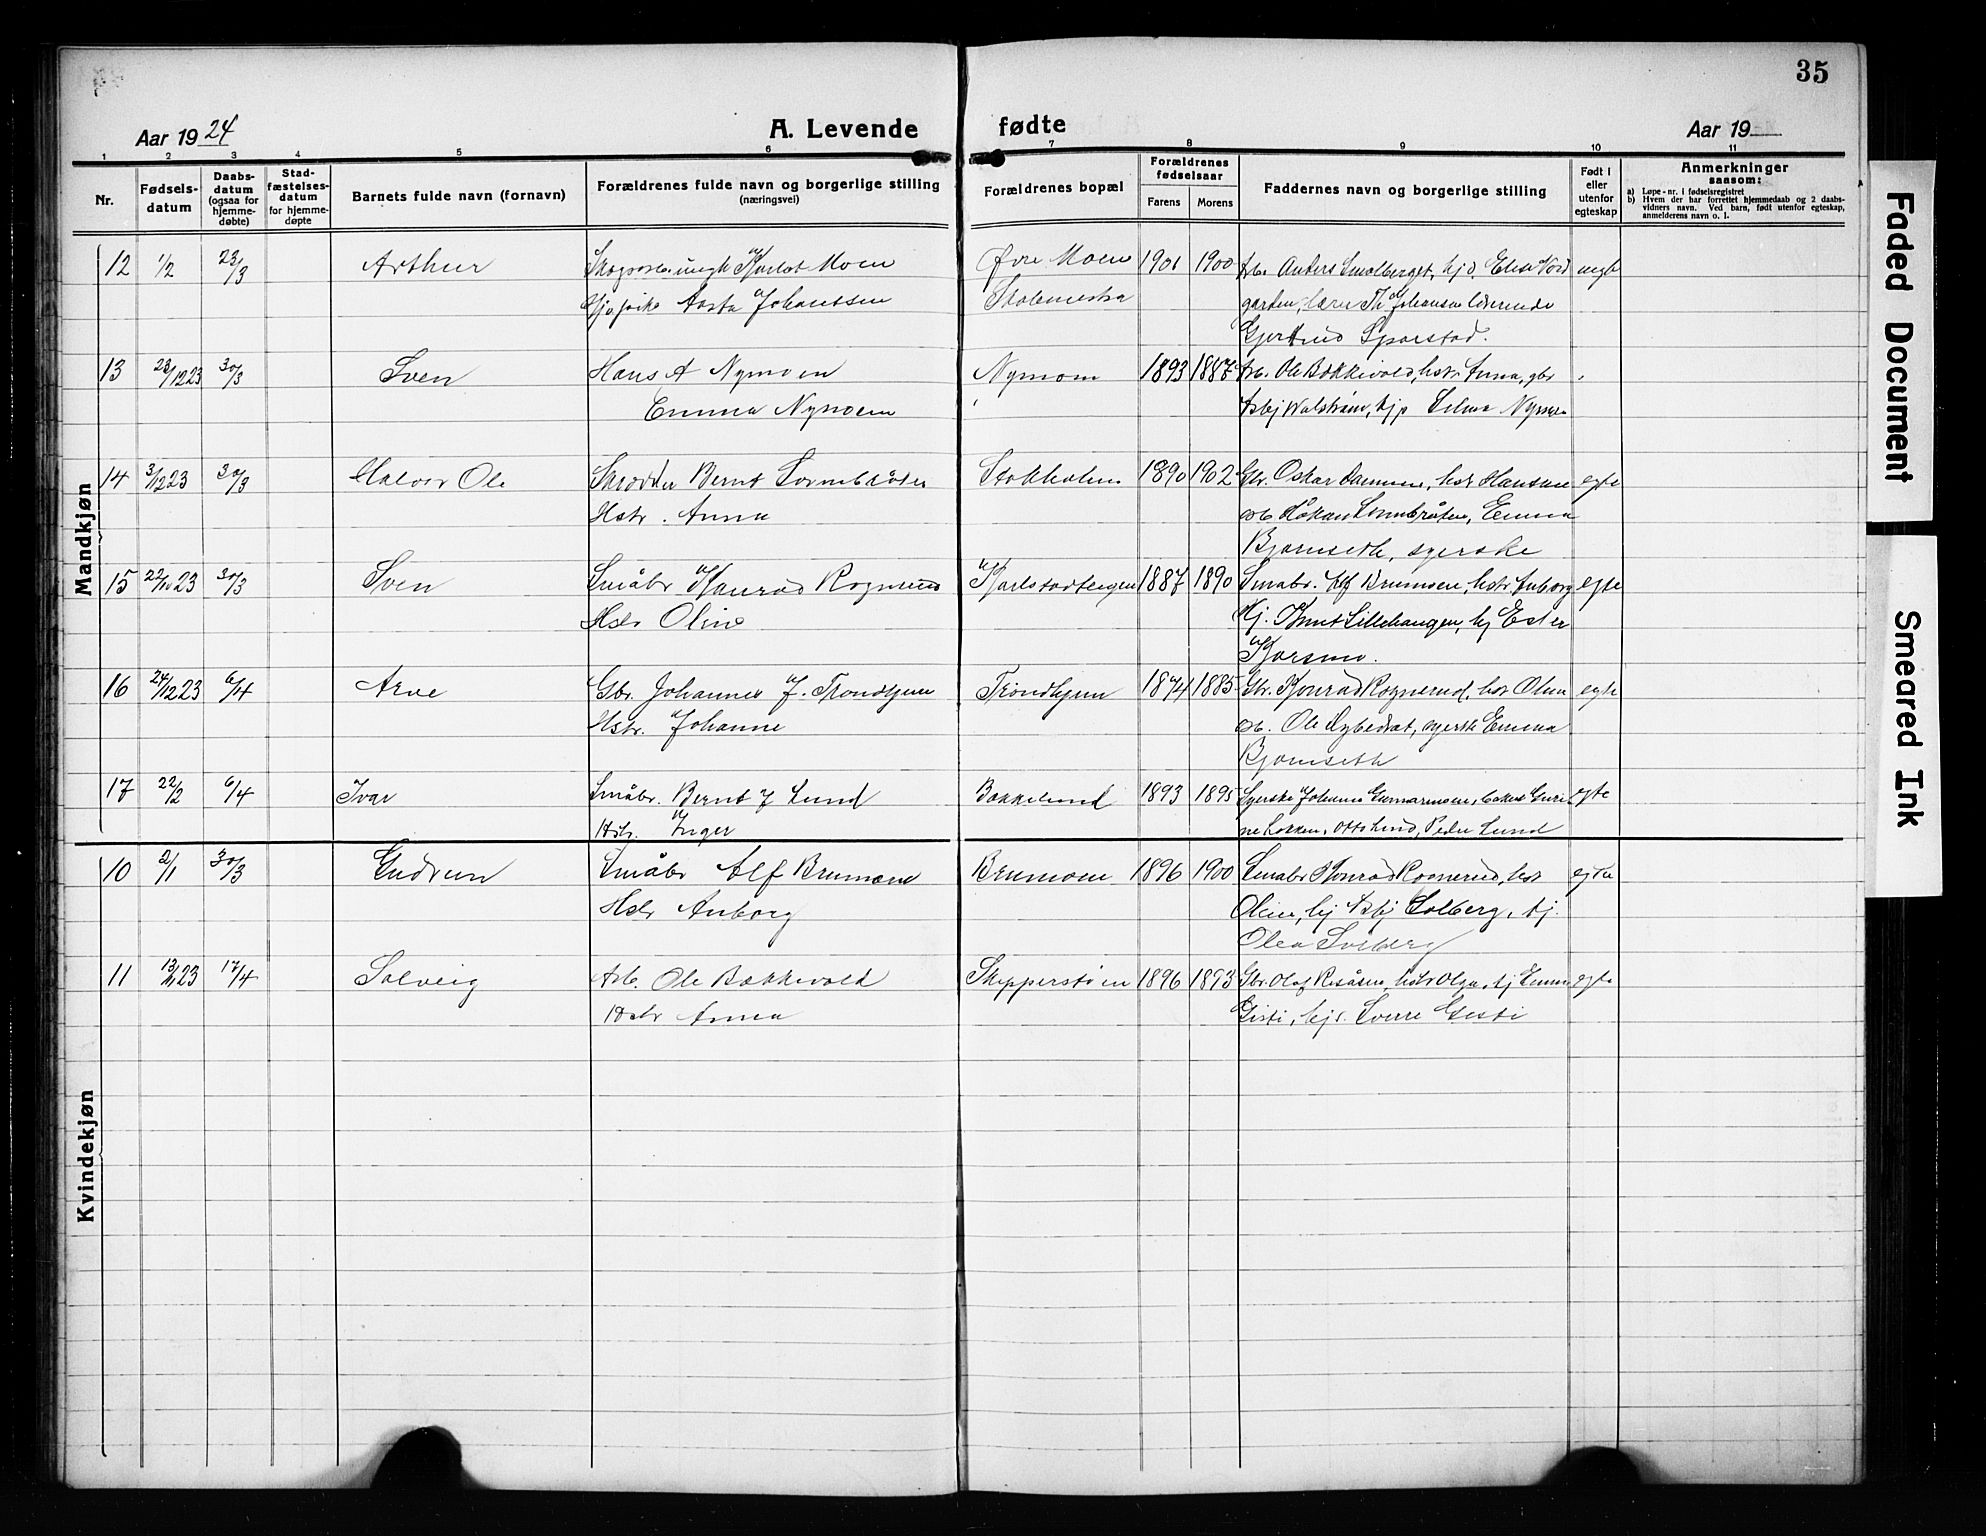 35
Aar 1924
A. Levende fødte
Aar 19
1 2 3 4 5 6 7 8 9 10 11
Nr.
Fødsels-
datum
Daabs-
datum
(ogsaa for
hjemme-
døbte)
Stad-
fæstelses-
datum
for hjemme-
døpte
Barnets fulde navn (fornavn)
Forældrenes fulde navn og borgerlige stilling
(næringsvei)
Forældrenes bopæl
Forældrenes
fødselsaar
Farens Morens
Faddernes navn og borgerlige stilling
Født i
eller
utenfor
egteskap
Anmerkninger
saasom:
a) Løpe-nr. i fødselsregistret
b) Hvem der har forrettet hjemmedaab og 2 daabs-
vidners navn. Ved barn, født utenfor egteskap,
anmelderens navn o. l.
Mandkjøn
12 1/2 23/3 Arthur Karlot Moen Øvre Moen 1901 1900 Arb. Anders Smalberget, Elise Nord
Aasta Johanssen garden, Th. Johansen
Gjertrud Sparstad.
13 23/12 23 30/3 Sven Hans A Nymoen Nymoen 1893 1887 Arb. Ole Bakkevold, hstr Anna, gbr
Emma Nymoen Asbj Walstrøm, Selma Nymoen
14 3/12 23 30/3 Halvor Ole Skrædder Bernt Lombråten Stokholm 1890 1902 Gbr. Oskar hstr Hansine egte
Hstr. Anna Håkan Lombråten, Emma
Bjørnseth, syerske
15 22/10 23 30/3 Sven Småbr Konrad Rognerud Karlstadtengen 1887 1890 Småbr. Alf Brumoen, hstr Anborg egte
Hstr Oline Kj. Knut Lillehaugen, kj Ester
Korsmo.
16 24/12 23 6/4 Arve Gbr. Johannes J. Trondhjem Trondhjem 1874 1885 Gbr. Konrad Rognerud, hstr Oline egte
Hstr. Johanne Ole syersk Emma
Bjørnseth
17 22/2 6/4 Ivar Småbr. Bernt J Lund Bakkelund 1893 1895 Syerske Johanne egte
Hstr. Inger Otto Lund, Peder Lund
Kvindekjøn
10 2/1 30/3 Gudrun Småbr Alf Brumoen Brumoen 1896 1900 Småbr Konrad Rognerud, hstr egte
Hstr Anborg Oline, kj Asbj Solberg, kj.
Olea Solberg
11 13/11 23 17/4 Solveig Arb. Ole Bakkevold Skipperstøen 1896 1893 Gbr. Olaf Risåsen, hstr Olga, kj Emma egte
Hstr Anna Gisti, Sverre Gisti
Faded Document
Smeared Ink